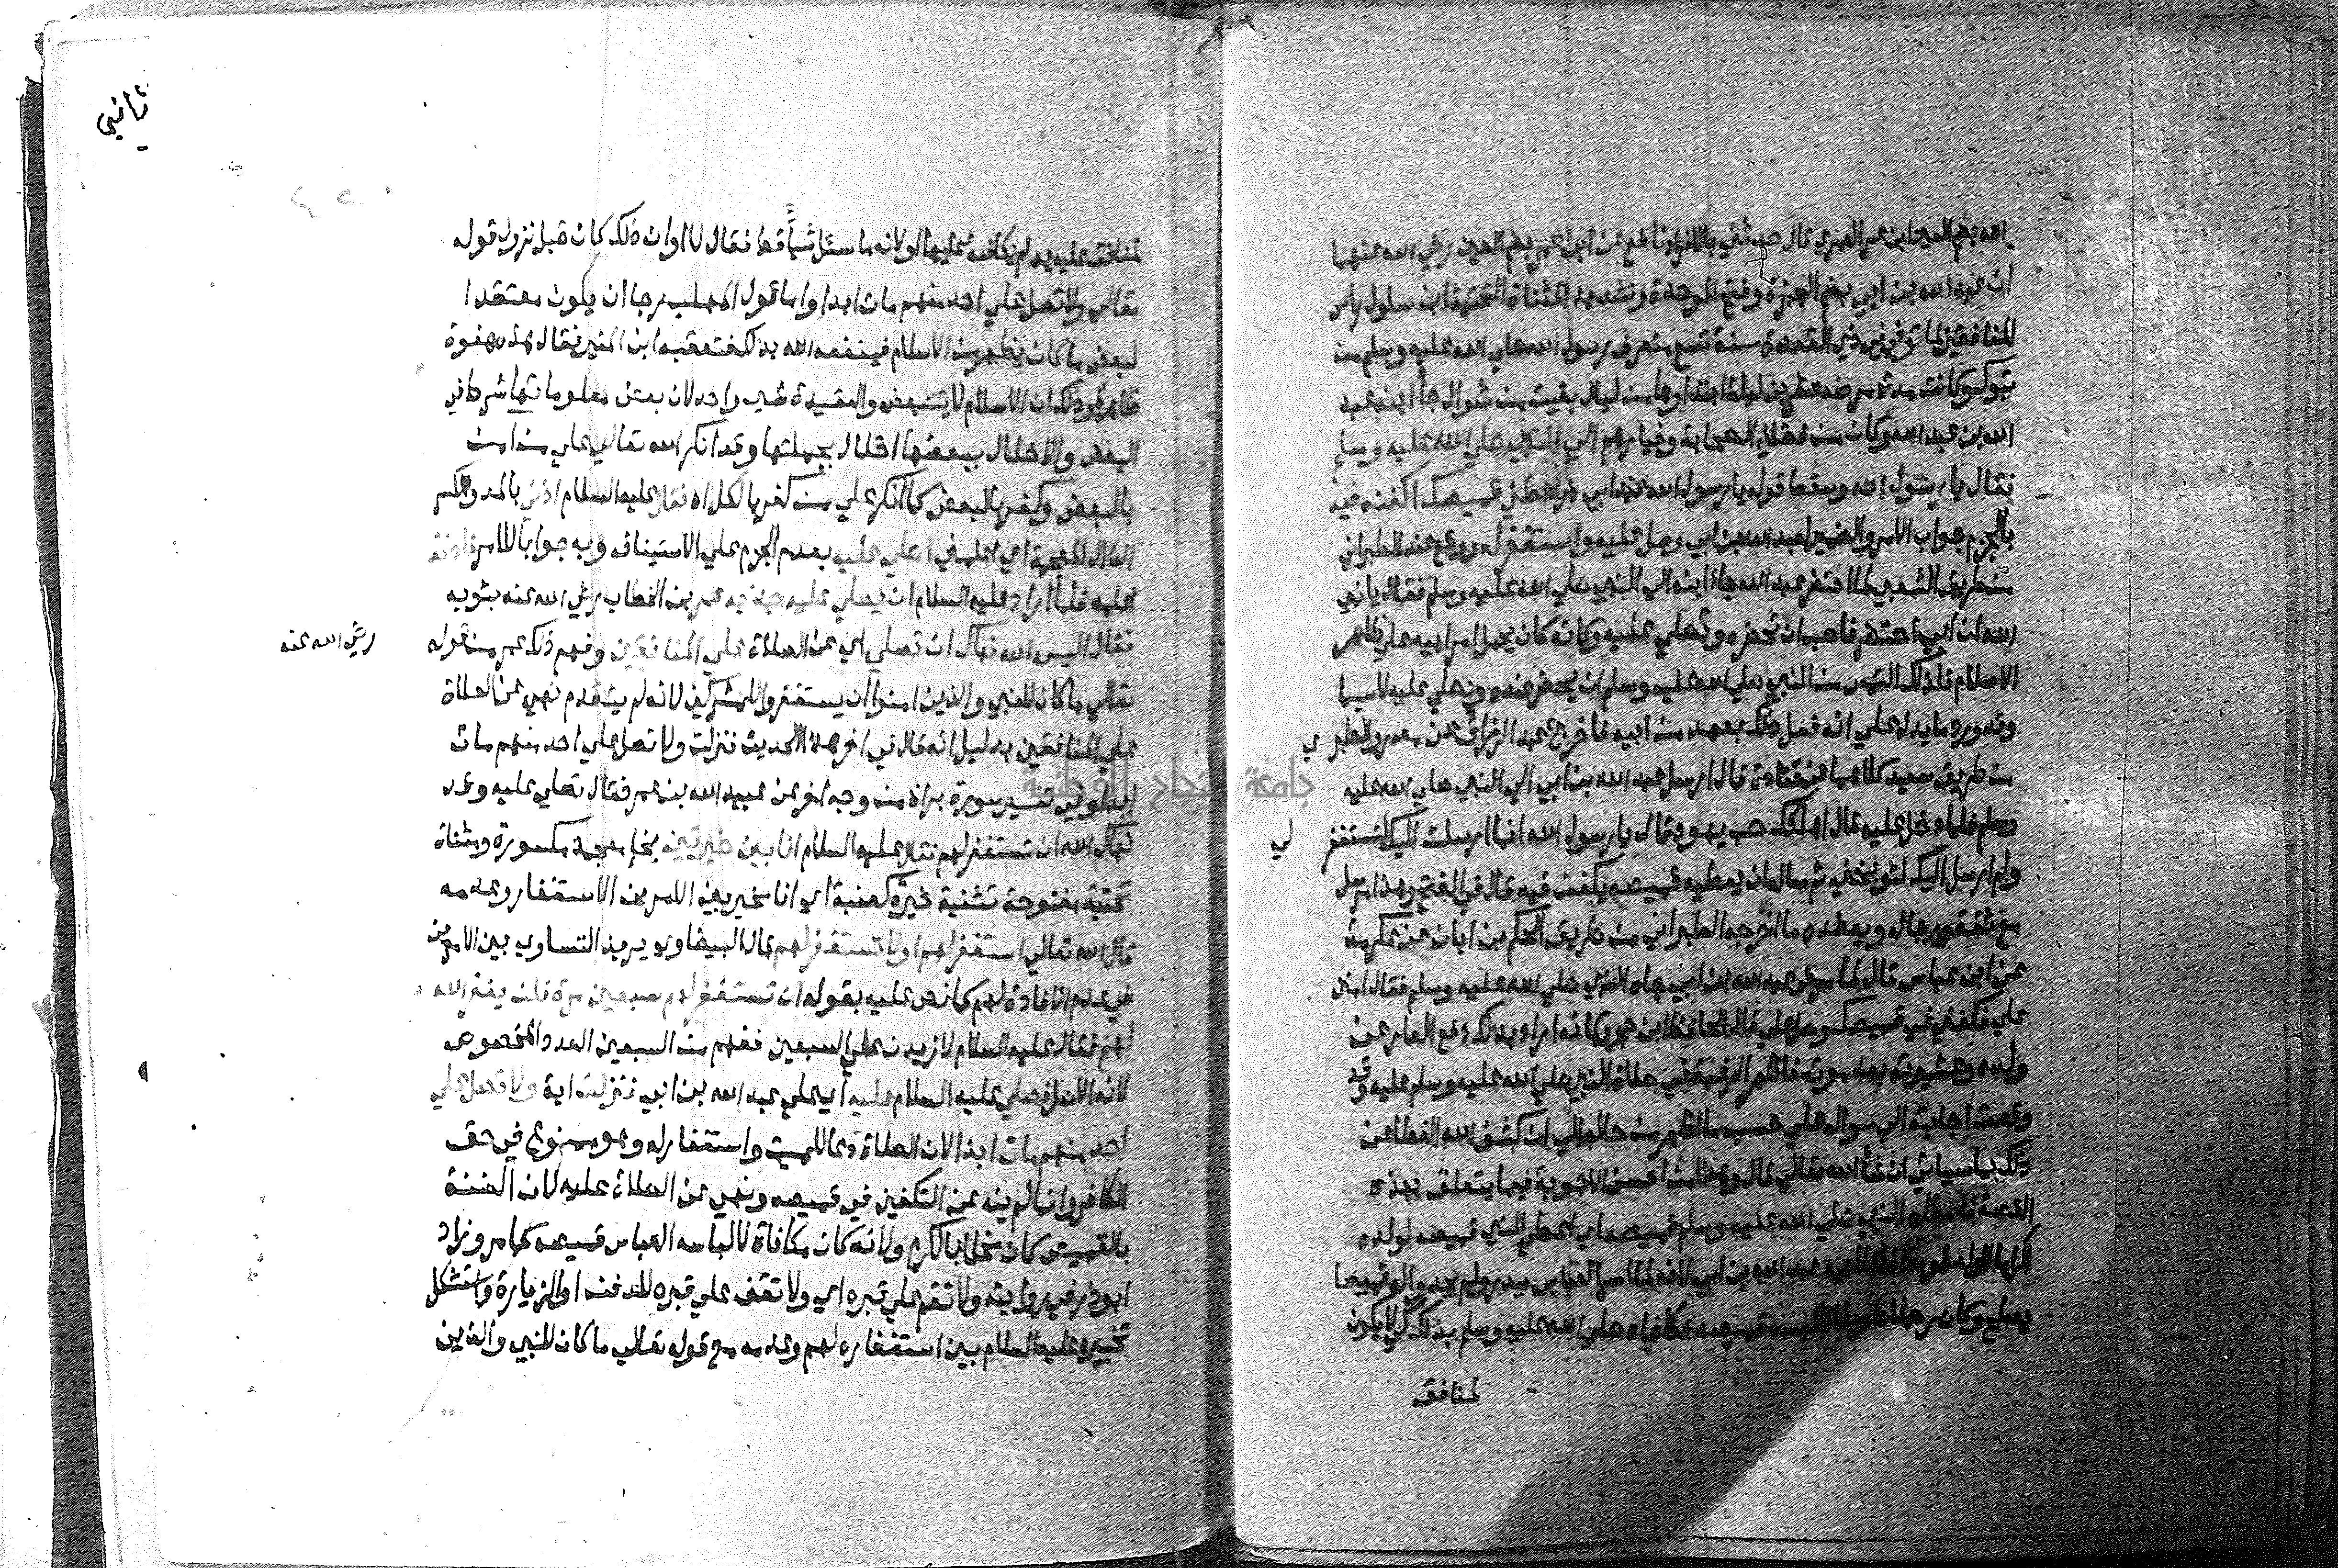 الله بضم العين ابن عمر العمري قال حدثني بالافراد نافع عن ابن عمر بضم العين رضي الله عنهما
ان عبد الله بن ابي بضم الهمزة وفتح الموحدة وتشديد المثناة التحتية ابن سلول راس
المنافقين لما توفي في ذي القعدة سنة تسع منصرف رسول الله صلي الله عليه وسلم من
تبوك وكانت مدة مرضه عشرين ليلة ابتداوها من ليال بقيت من شوال جأ ابنه عبد
الله بن عبد الله وكان من فضلاء الصحابة وخيارهم الي النبي صلي الله عليه وسلم
فقال يا رسول الله وسقط قوله يا رسول الله عند ابي ذر اعطني قميصك اكفنه فيه
بالجزم جواب الامر والضمير لعبد الله بن ابي وصل عليه واستغفر له ووقع عند الطبراني
من طريق الشعبي لما احتضر عبد الله جاء ابنه الي النبي صلي الله عليه وسلم فقال يا نبي
الله ان ابي احتضر فاحب ان تحضره وتصلي عليه وكانه كان يحمل امر ابيه علي ظاهر
الاسلام فلذلك التمس من النبي صلي الله عليه وسلم ان يحضر عنده ويصلي عليه لاسيما
وقد ورد ما يدل علي انه فعل ذلك بعهد من ابيه فاخرج عبد الرزاق عن معمر والطبري
من طريق سعيد كلاهما عن قتادة قال ارسل عبد الله بن ابي الي النبي صلي الله عليه
وسلم فلما دخل عليه قال اهلكك حب يهود قال يا رسول الله انما ارسلت اليك لتستغفر لي
ولم ارسل اليك لتوبخني ثم ساله ان يعطيه قميصه يكفن فيه قال في الفتح وهذا مرسل
مع ثقة رجاله ويعضده ما اخرجه الطبراني من طريق الحكم بن ابان عن عكرمة
عن ابن عباس قال لما مرض عبد الله بن ابي جاه النبي صلي الله عليه وسلم فقال امنن
علي فكفني في قميصك وصل علي قال الحافظ ابن حجر وكانه اراد بذلك دفع العار عن
ولده وعشيرته بعد موته فاظهر الرغبة في صلاة النبي صلي الله عليه وسلم عليه وقد
وقعت اجابته الي سواله علي حسب ما ظهر من حاله الي ان كشف الله الغطا عن
ذلك كما سياتي ان شأ الله تعالي قال وهذا من احسن الاجوبة فيما يتعلق بهذه
القصة فاعطاه النبي صلي الله عليه وسلم قميصه اي اعطي النبي قميصه لولده
اكراما للولد او مكافاة لابيه عبد الله بن ابي لانه لما اسر العباس ببدر ولم يجدوا له قميصا
يصلح وكان رجلا طويلا فالبسه قميصه فكافاه صلي الله عليه وسلم بذلك كي لا يكون
لمنافق
ثاني
لمنافق عليه يد لم يكافه عليها او لانه ما سئل شيأ قط فقال لا او ان ذلك كان قبل نزول قوله
تعالي ولا تصل علي احد منهم مات ابدا واما قول المهلب رجا ان يكون معتقدا
لبعض ما كان يظهر من الاسلام فينفعه الله بذلك فتعقبه ابن المنير فقال هذه هفوة
ظاهرة وذلك ان الاسلام لا يتبعض والعقيدة شي واحد لان بعض معلوماتها شرط في
البعض والاخلال ببعضها اخلال بجملتها وقد انكر الله تعالي علي من امن
بالبعض وكفر بالبعض كما انكر علي من كفر بالكل اه فقال عليه السلام اذني بالمد وكسر
الذال المعجمة اي اعلمني اصلي عليه بعدم الجزم علي الاستيناف وبه جوابا للامر فاذنه
عليه فلما اراد عليه السلام ان يصلي عليه جذبه عمر بن الخطاب رضي الله عنه بثوبه
فقال اليس الله نهاك ان تصلي اي عن الصلاة علي المنافقين وفهم ذلك عمر من قوله رضي الله عنه
تعالي ما كان للنبي والذين امنوا ان يستغفروا للمشركين لانه لم يتقدم نهي عن الصلاة
علي المنافقين بدليل انه قال في اخر هذا الحديث فنزلت ولا تصل علي احد منهم مات
ابدا وفي تفسير سورة براة من وجه اخر عن عبيد الله بن عمر فقال تصلي عليه وقد
نهاك الله ان تستغفر لهم فقال عليه السلام انا بين خيرتين بخاء معجمة مكسورة ومثناة
تحتية مفتوحة تثنية خيرة كعنبة اي انا مخير بين الامرين الاستغفار وعدمه
قال الله تعالي استغفر لهم او لا تستغفر لهم قال البيضاوي يريد التساوي بين الامرين
في عدم الافادة لهم كما نص عليه بقوله ان تستغفر لهم سبعين مرة فلن يغفر الله
لهم فقال عليه السلام لازيدن علي السبعين ففهم من السبعين العدد المخصوص
لانه الاصل فصلي عليه السلام عليه اي علي عبد الله بن ابي فنزلت اية ولا تصل علي
احد منهم مات ابدا لان الصلاة دعا للميت واستغفار له وهو ممنوع في حق
الكافر وانما لم ينه عن التكفين في قميصه ونهي عن الصلاة عليه لان الضنة
بالقميص كان مخلا بالكرم ولانه كان مكافاة لالباسه العباس قميصه كما مر وزاد
ابو ذر في روايته ولا تقم علي قبره اي ولا تقف علي قبره للدفن او الزيارة واستشكل
تخييره عليه السلام بين استغفاره لهم وعدمه مع قوله تعالي ما كان للنبي والذين
جامعة النجاح الوطنية